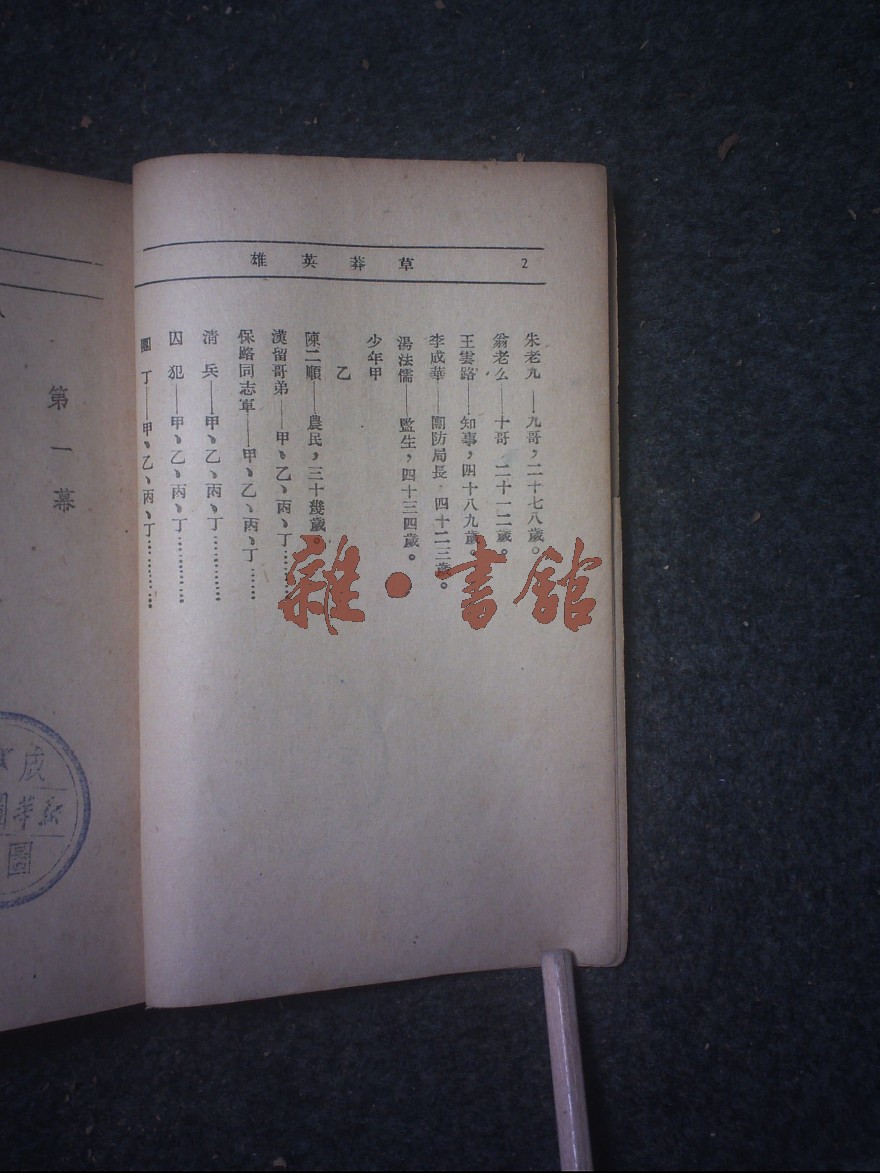 草莽英雄 2
朱老九——九哥，二十七八歲。
翁老么——十哥，二十一二歲。
王雲路——知事，四十八九歲。
李成華——團防局長，四十二三歲。
湯法儒——監生，四十三四歲。
少年甲
乙
陳二順——農民，三十幾歲。
漢留哥弟——甲、乙、丙、丁…………
保路同志軍——甲、乙、丙、丁……
清兵——甲、乙、丙、丁…………
囚犯——甲、乙、丙、丁…………
團丁——甲、乙、丙、丁…………
第一幕
雜·書館
成
圖